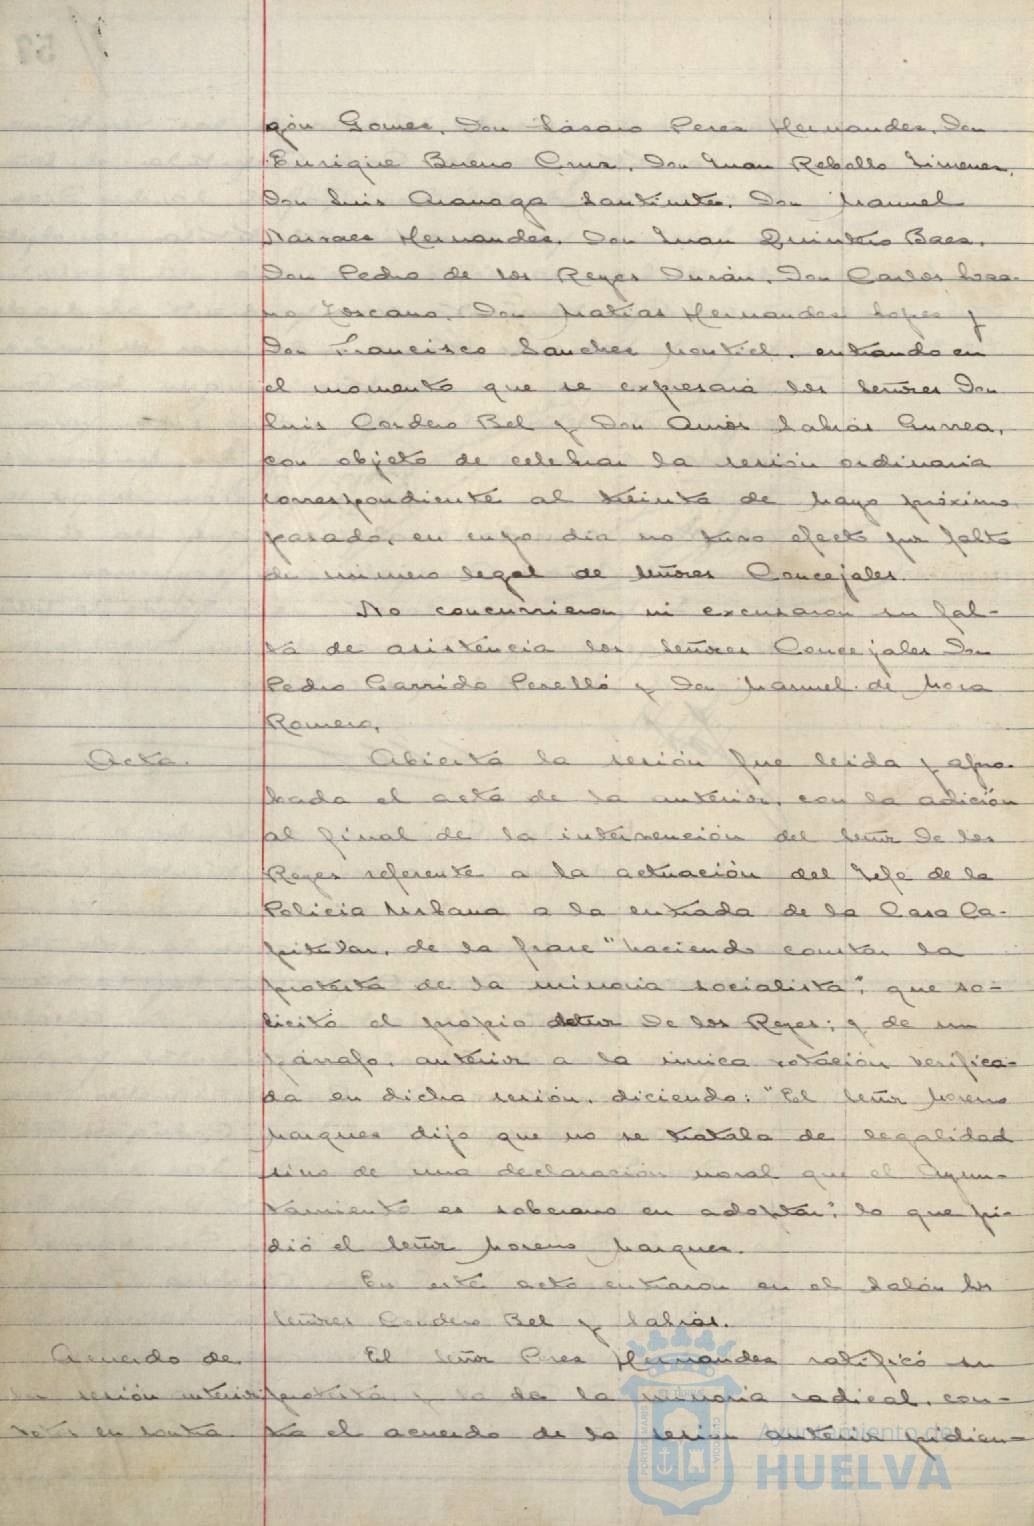 gón Gomez, Don Lásaro Perez Hernandez, Don
Enrique Bueno Cruz, Don Juan Rebollo Jimenez,
Don Luis Aranaga Santiuste, Don Manuel
Narvaez Hernandez, Don Juan Quintero Baez,
Don Pedro de los Reyes Durán, Don Carlos Loza-
no Toscano, Don Matías Hernandez Lopez y
Don Francisco Sanchez Montiel, entrando en
el momento que se expresará los Señores Don
Luis Cordero Bel y Don Amós Sabrás Gurrea,
con objeto de celebrar la sesión ordinaria
correspondiente al treinta de Mayo próximo
pasado, en cuyo día no tuvo efecto por falta
de número legal de Señores Concejales.
No concurrieron ni excusaron su fal-
ta de asistencia los Señores Concejales Don
Pedro Garrido Perelló y Don Manuel de Mora
Romero.
Acta. Abierta la sesión fue leida y apro-
bada el acta de la anterior, con la adición
al final de la intervención del Señor De los
Reyes referente a la actuación del Jefe de la
Policia Urbana a la entrada de la Casa Ca-
pitular, de la frase "haciendo constar la
protesta de la minoria socialista", que so-
licitó el propio Señor De los Reyes; y de un
párrafo, anterior a la única votación verifica-
da en dicha sesión, diciendo: "El Señor Moreno
Marquez dijo que no se trataba de legalidad
sino de una declaración moral que el Ayun-
tamiento es soberano en adoptar", lo que pi-
dió el Señor Moreno Marquez.
En este acto entraron en el Salón los
Señores Cordero Bel y Sabrás.
Acuerdo de El Señor Perez Hernandez ratificó su
la sesión anterior protesta y la de la minoria radical, con-
ta el acuerdo de la sesión anterior pidien-
Ayuntamiento de
HUELVA
PORTUS MARIS
ET TERRÆ
CUSTODIA